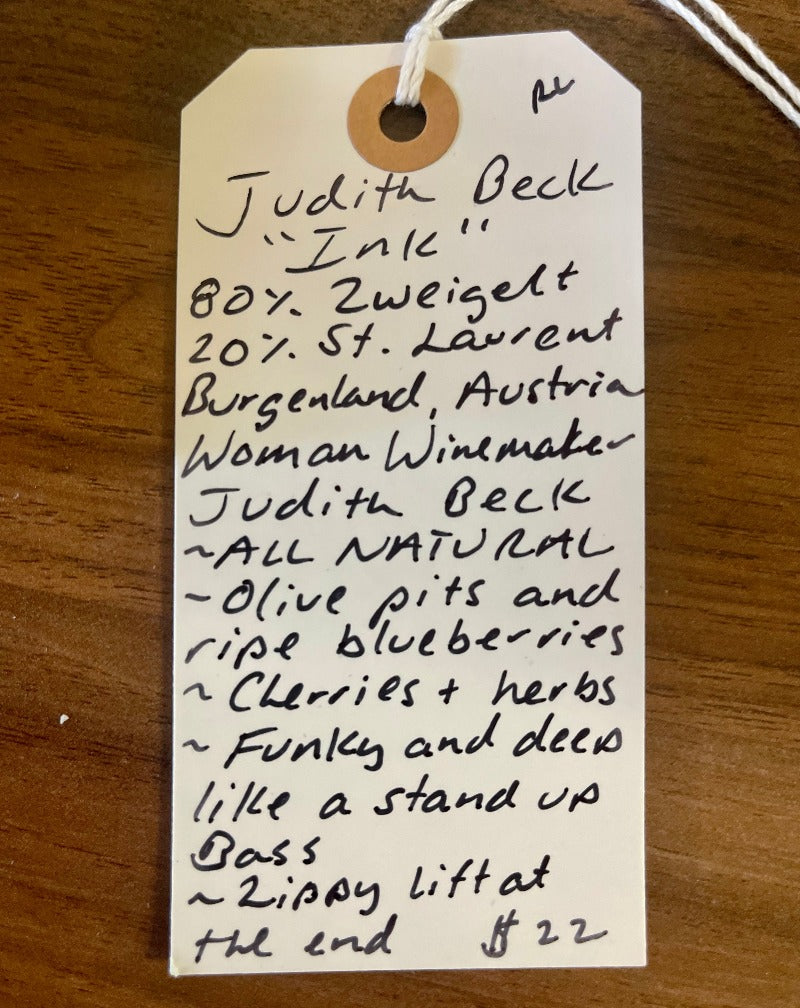 Judith Beck
"Ink"
80% Zweigelt
20% St. Laurent
Burgenland, Austria
Woman Winemaker
Judith Beck
~ALL NATURAL
~Olive pits and
ripe blueberries
~Cherries + herbs
~Funky and deep
like a stand up
Bass
~Zippy lift at
the end $22